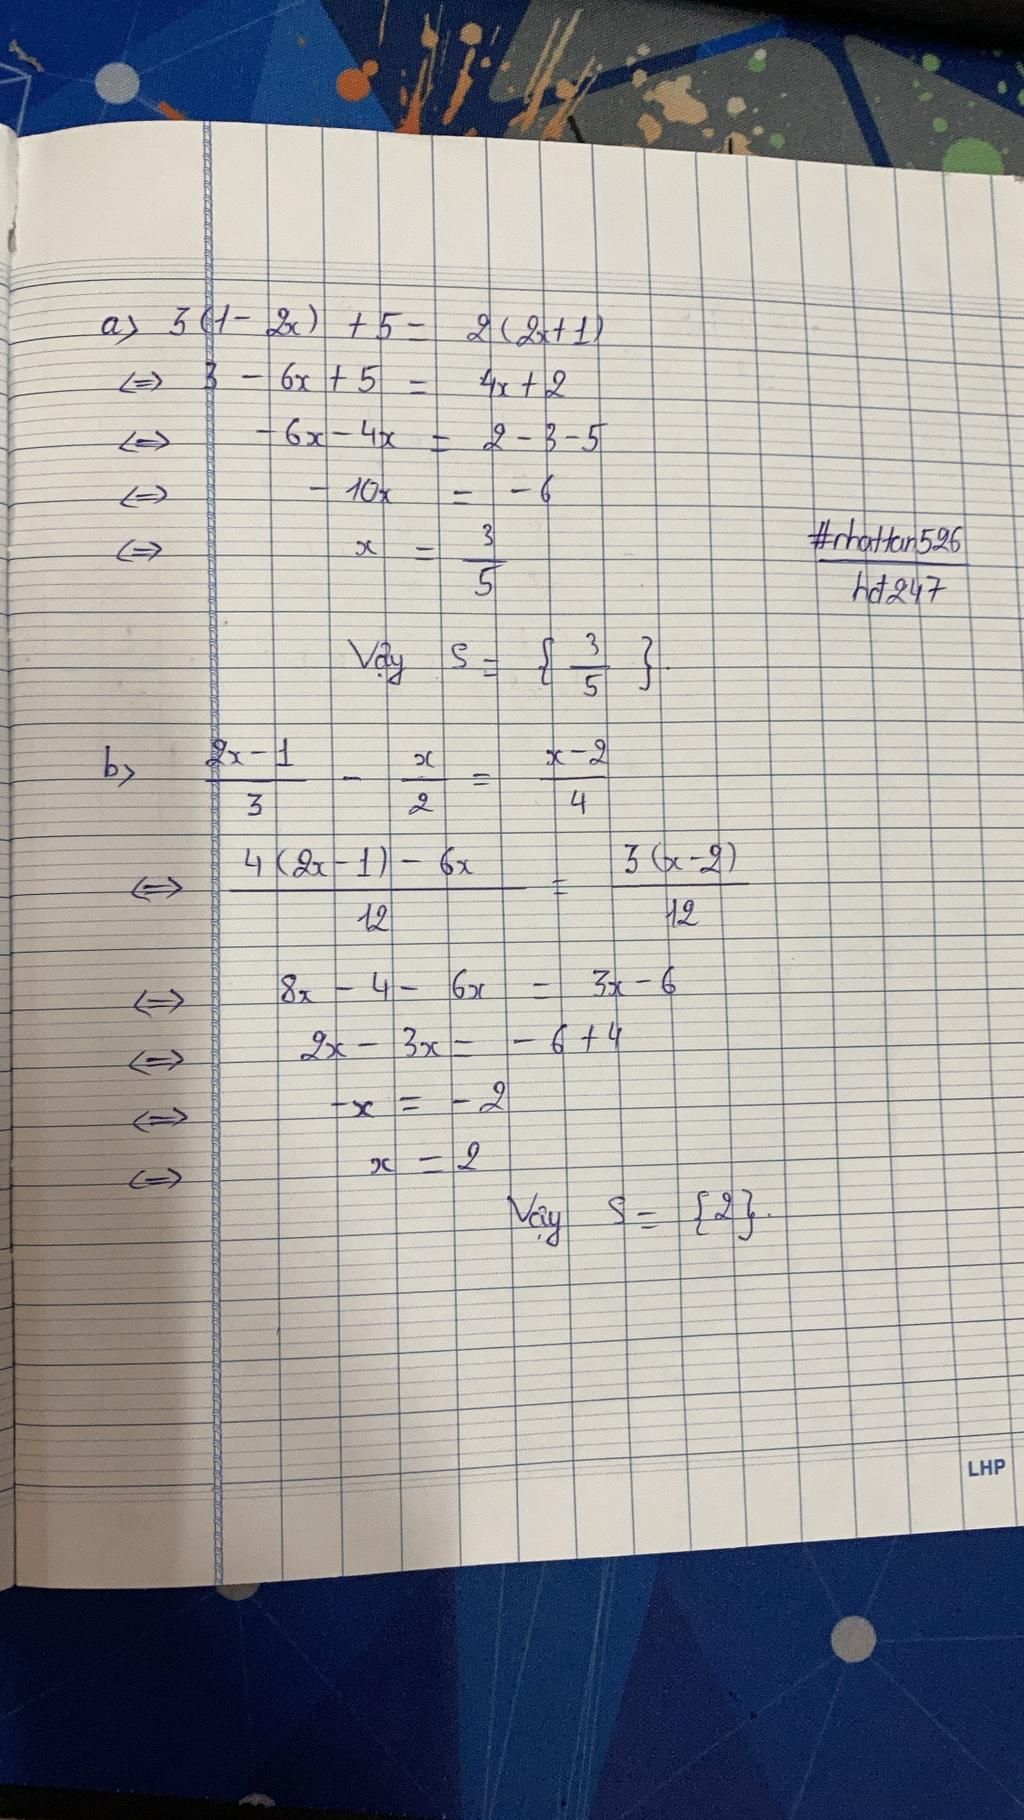 a) 3(1 - 2x) + 5 = 2(2x+1)
<=> 3 - 6x + 5 = 4x + 2
<=> -6x - 4x = 2 - 3 - 5
<=> -10x = -6
<=> x = 3/5
#nhattan526
hd247
Vậy S = { 3/5 }.
b) (2x - 1)/3 - x/2 = (x - 2)/4
<=> (4(2x - 1) - 6x)/12 = 3(x - 2)/12
<=> 8x - 4 - 6x = 3x - 6
<=> 2x - 3x = -6 + 4
<=> -x = -2
<=> x = 2
Vậy S = {2}.
LHP